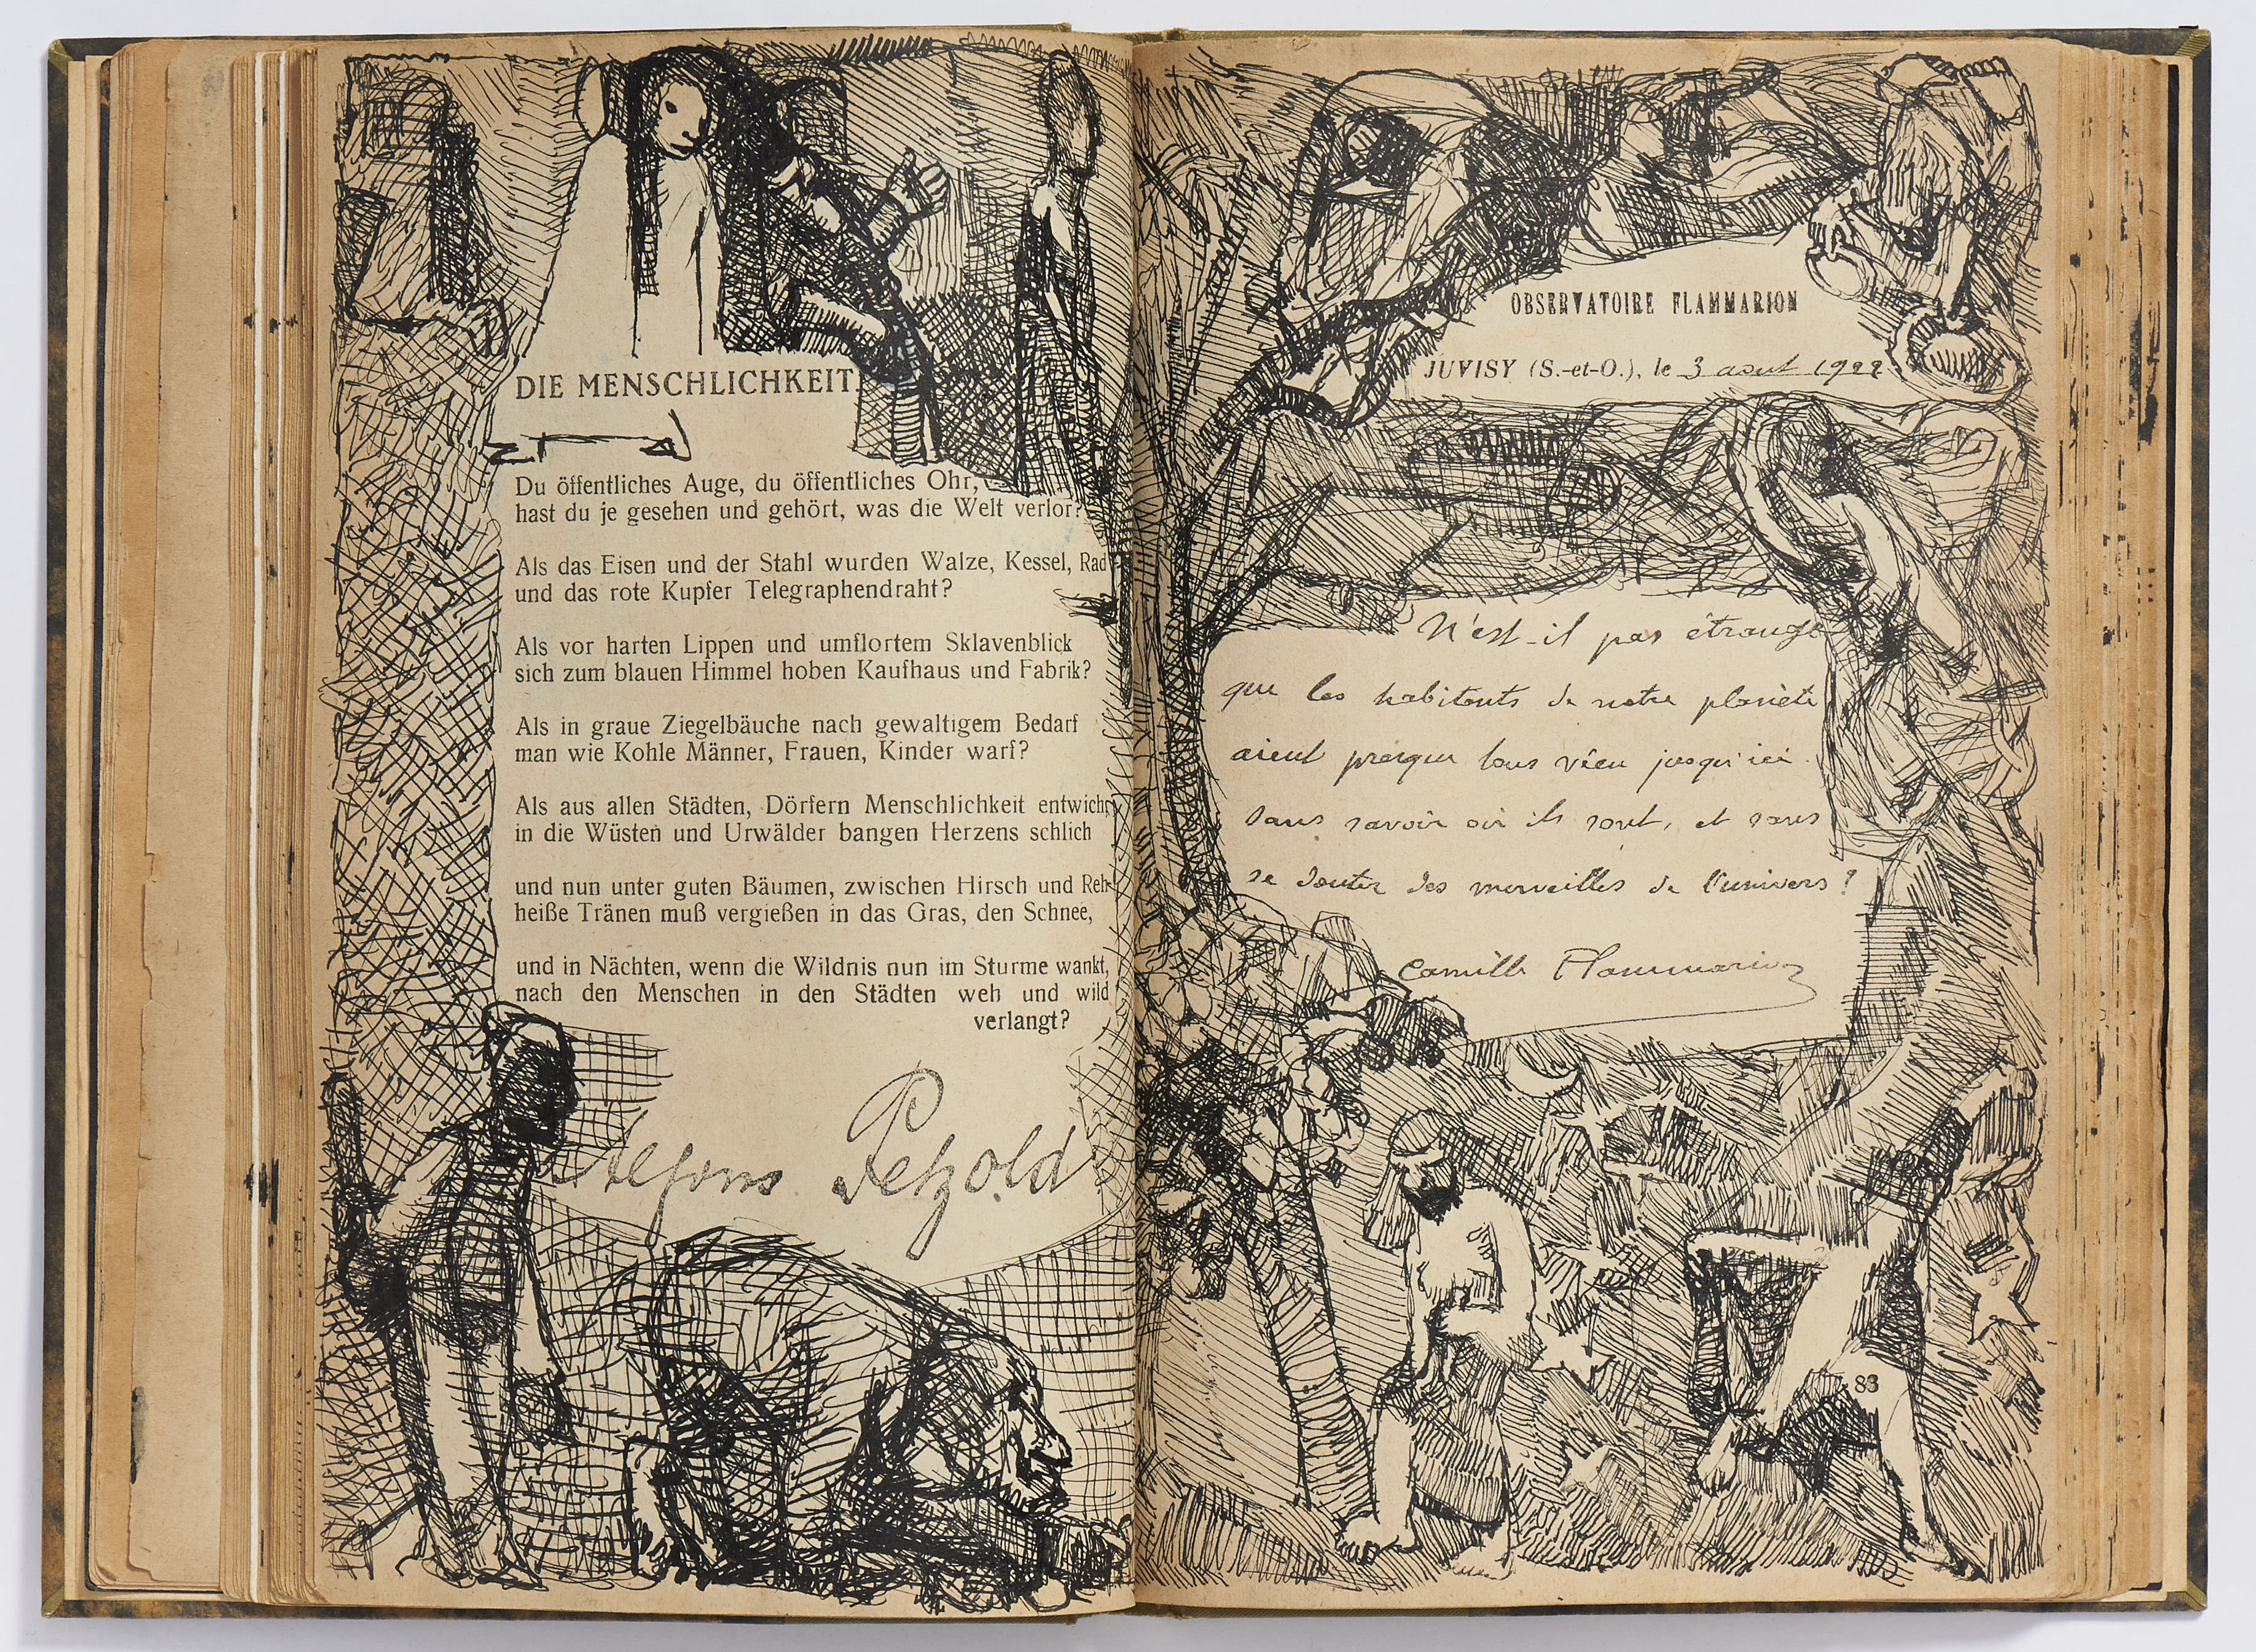 DIE MENSCHLICHKEIT.
Du öffentliches Auge, du öffentliches Ohr,
hast du je gesehen und gehört, was die Welt verlor?
Als das Eisen und der Stahl wurden Walze, Kessel, Rad
und das rote Kupfer Telegraphendraht?
Als vor harten Lippen und umflortem Sklavenblick
sich zum blauen Himmel hoben Kaufhaus und Fabrik?
Als in graue Ziegelbäuche nach gewaltigem Bedarf
man wie Kohle Männer, Frauen, Kinder warf?
Als aus allen Städten, Dörfern Menschlichkeit entwich,
in die Wüsten und Urwälder bangen Herzens schlich
und nun unter guten Bäumen, zwischen Hirsch und Reh
heiße Tränen muß vergießen in das Gras, den Schnee,
und in Nächten, wenn die Wildnis nun im Sturme wankt,
nach den Menschen in den Städten weh und wild
verlangt?
Alfons Petzold
OBSERVATOIRE FLAMMARION
JUVISY (S.-et-O.), le 3 aout 1922
N'est-il pas étrange
que les habitants de notre planète
aient presque tous vécu jusqu'ici
sans savoir où ils sont, et sans
se douter des merveilles de l'univers?
Camille Flammarion
83